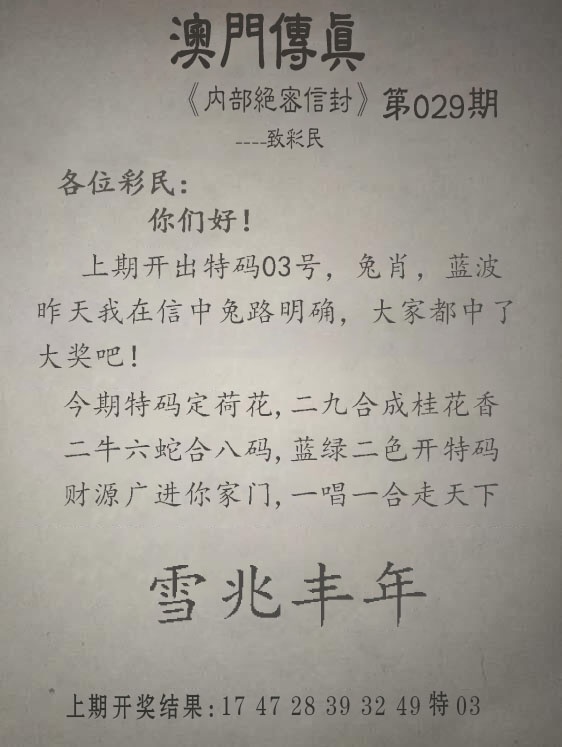 澳門傳眞
《内部絕密信封》第029期
----致彩民
各位彩民：
你们好！
上期开出特码03号，兔肖，蓝波
昨天我在信中兔路明确，大家都中了
大奖吧！
今期特码定荷花,二九合成桂花香
二牛六蛇合八码,蓝绿二色开特码
财源广进你家门,一唱一合走天下
雪兆丰年
上期开奖结果:17 47 28 39 32 49 特 03